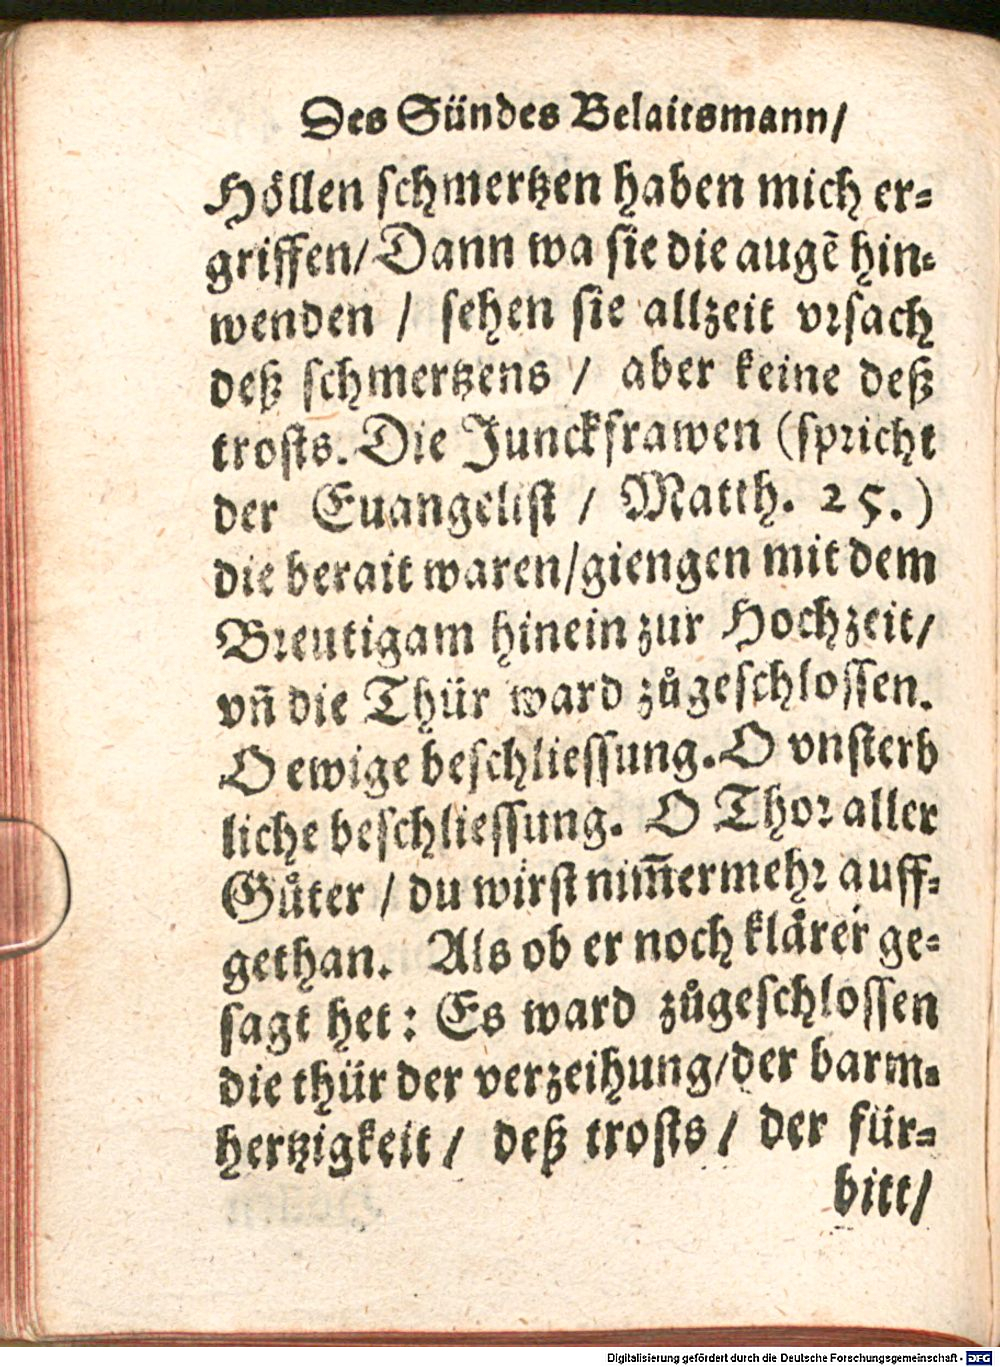 Des Sündes Belaitsmann/
Höllen schmertzen haben mich er⸗
griffen/ Dann wa sie die augẽ hin⸗
wenden / sehen sie allzeit vrsach
deß schmertzens / aber keine deß
trosts. Die Junckfrawen (spricht
der Euangelist / Matth. 25.)
die berait waren/giengen mit dem
Breutigam hinein zur Hochzeit/
vñ die Thür ward zůgeschlossen.
O ewige beschliessung. O vnsterb
liche beschliessung. O Thor aller
Gůter / du wirst nim̃ermehr auff⸗
gethan. Als ob er noch klårer ge⸗
sagt het: Es ward zůgeschlossen
die thür der verzeihung/der barm⸗
hertzigkeit / deß trosts / der für⸗
bitt/
Digitalisierung gefördert durch die Deutsche Forschungsgemeinschaft - DFG